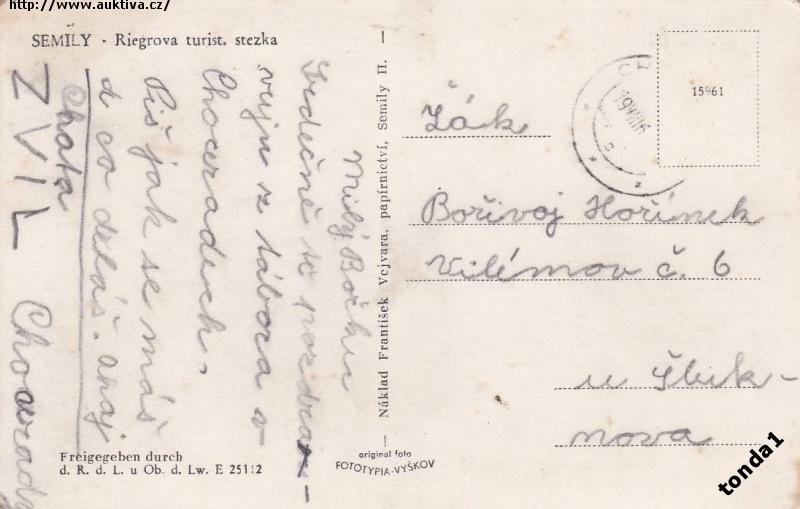 http://www.auktiva.cz/
SEMILY - Riegrova turist. stezka
Milý Bořku
Srdečně tě pozdra-
vuju z tábora v
Choceradech.
Piš jak se máš
a co deláš. ahoj
Chata
ZVIL
Chocerady
Freigegeben durch
d. R. d. L. u Ob. d. Lw. E 25112
Náklad František Vejvara, papírnictví, Semily II.
original foto
FOTOTYPIA-VYŠKOV
15961
Žák
Bořivoj Hořínek
Vilémov č. 6
u Šluk-
nova
tonda1